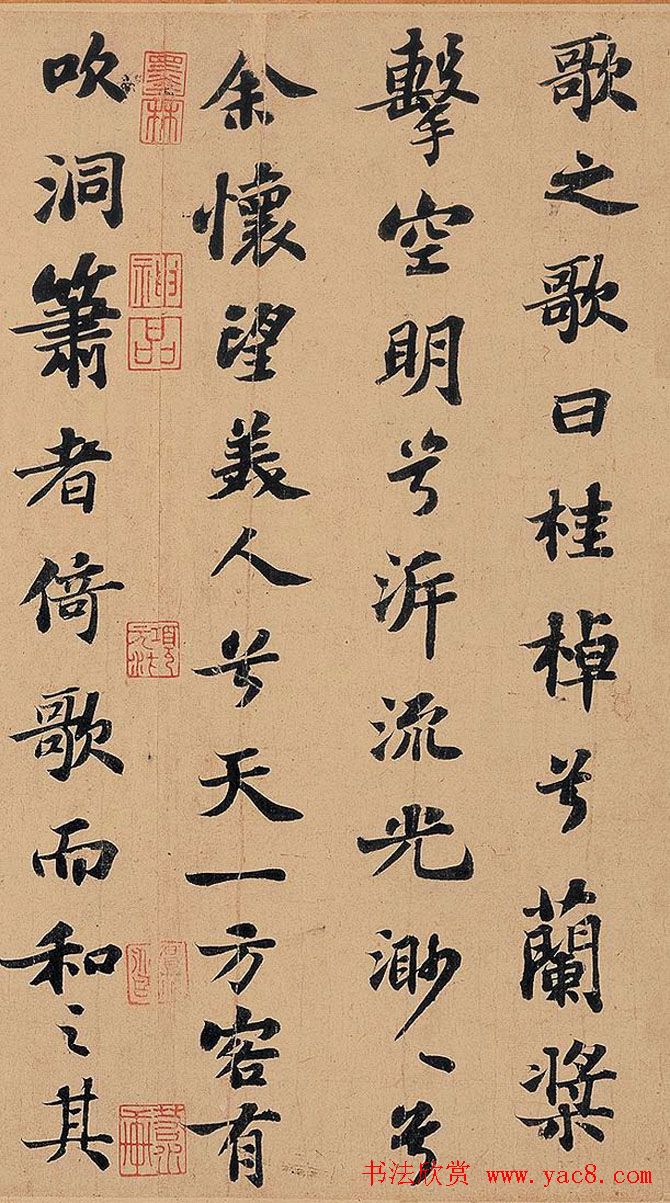 歌之歌曰桂棹兮蘭槳
擊空明兮泝流光渺〻兮
余懷望美人兮天一方客有
吹洞簫者倚歌而和之其
墨林
神品
书法欣赏 www.yac8.com